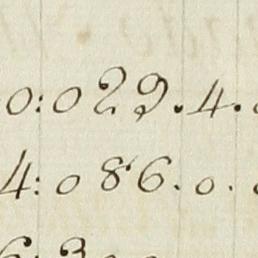 0:029.4.
4:086.0.
6:3